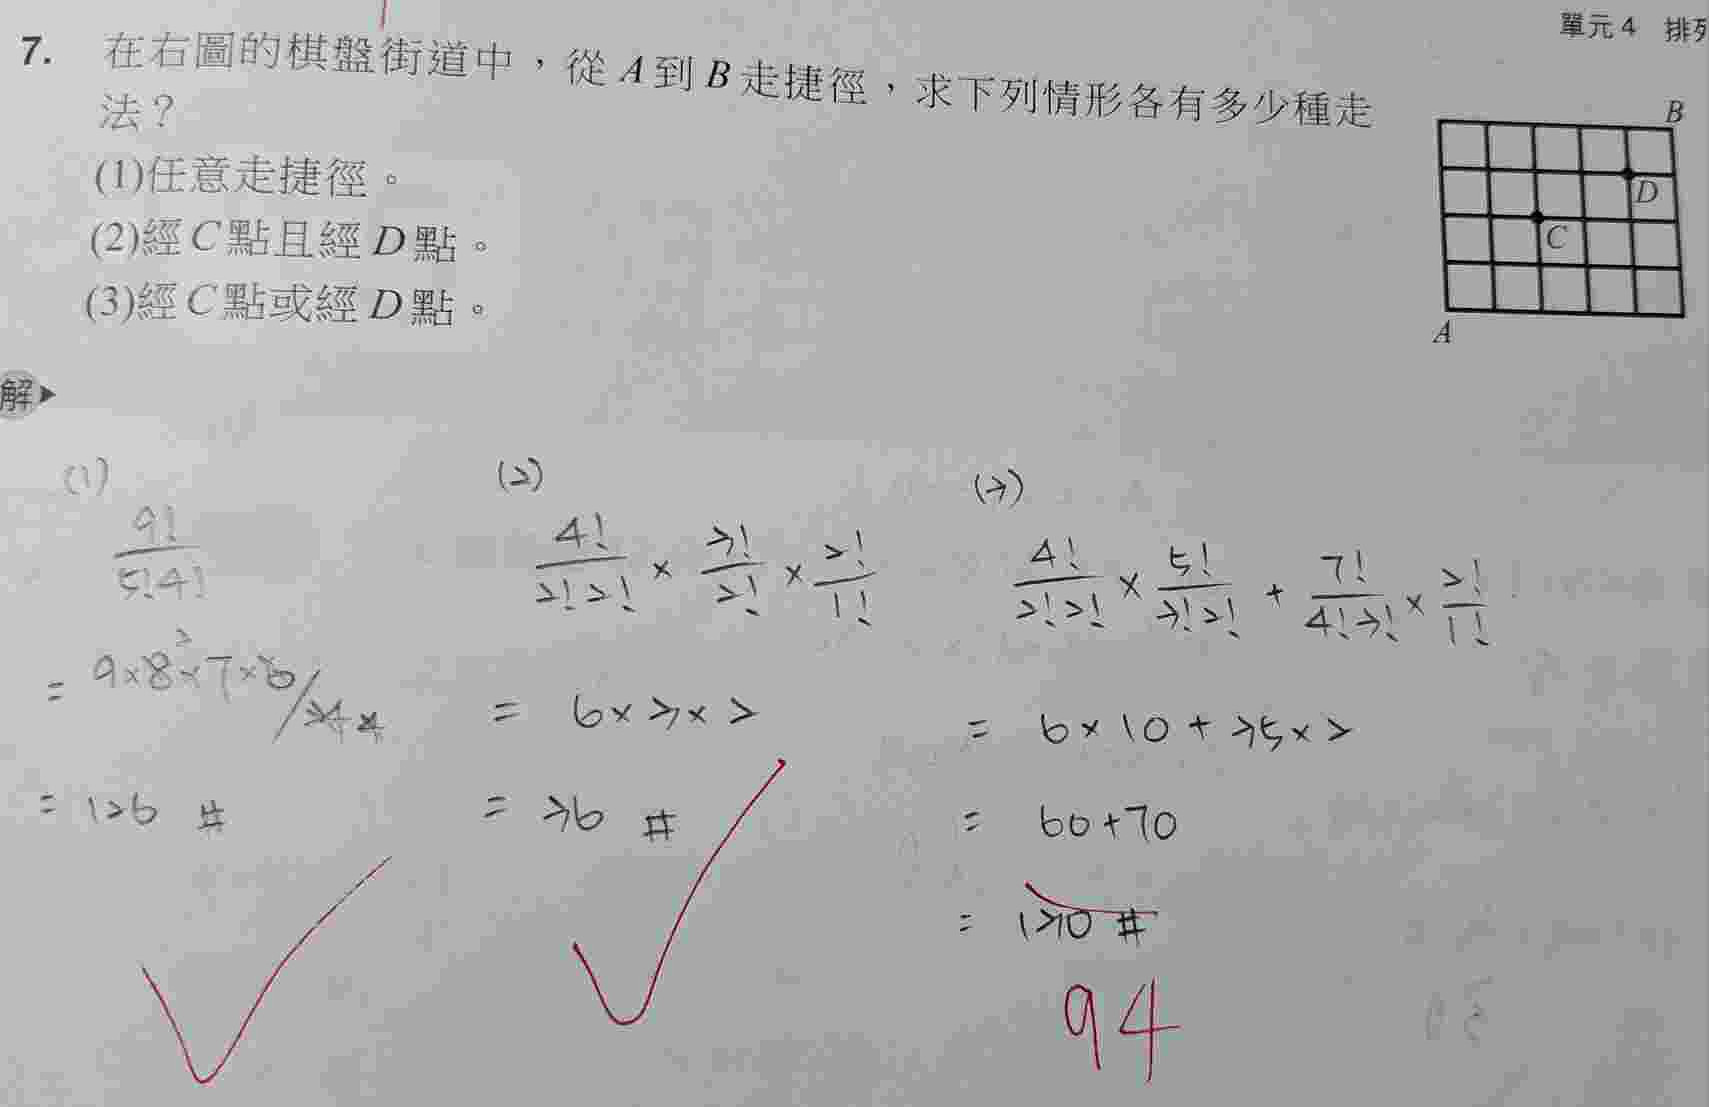 單元 4 排列
7. 在右圖的棋盤街道中，從 A 到 B 走捷徑，求下列情形各有多少種走
法？
(1)任意走捷徑。
(2)經 C 點且經 D 點。
(3)經 C 點或經 D 點。
B
D
C
A
解
(1)
9!/5!4!
= 9×8×7×6/24
= 126 #
(2)
4!/2!2! × 3!/2! × 2!/1!
= 6×3×2
= 36 #
(3)
4!/2!2! × 5!/3!2! + 7!/4!3! × 2!/1!
= 6×10+35×2
= 60+70
= 130 #
94